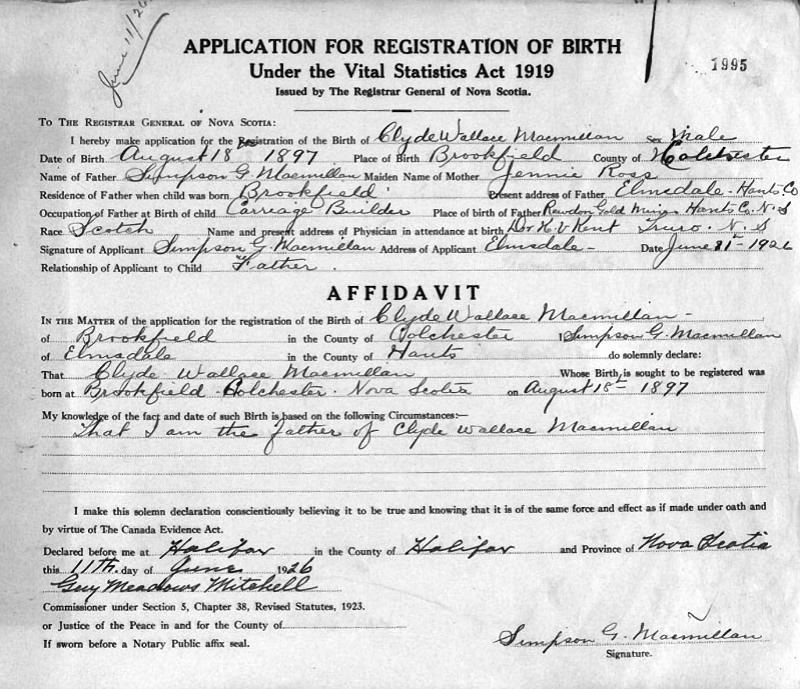 June 11/26
APPLICATION FOR REGISTRATION OF BIRTH
Under the Vital Statistics Act 1919
Issued by The Registrar General of Nova Scotia.
1995
To The Registrar General of Nova Scotia:
I hereby make application for the Registration of the Birth of Clyde Wallace Macmillan Sex Male
Date of Birth August 18 1897 Place of Birth Brookfield County of Colchester
Name of Father Simpson G Macmillan Maiden Name of Mother Jennie Ross
Residence of Father when child was born Brookfield Present address of Father Elmsdale - Hants Co
Occupation of Father at Birth of child Carriage Builder Place of birth of Father Rawdon Gold Mines Hants Co. N. S
Race Scotch Name and present address of Physician in attendance at birth Dor H. V Kent Truro. N. S
Signature of Applicant Simpson G. Macmillan Address of Applicant Elmsdale - Date June 11 - 1926
Relationship of Applicant to Child Father.
AFFIDAVIT
In the Matter of the application for the registration of the Birth of Clyde Wallace Macmillan -
of Brookfield in the County of Colchester I Simpson G. Macmillan
of Elmsdale in the County of Hants do solemnly declare:
That Clyde Wallace Macmillan Whose Birth is sought to be registered was
born at Brookfield - Colchester - Nova Scotia on August 18th - 1897
My knowledge of the fact and date of such Birth is based on the following Circumstances:—
That I am the father of Clyde Wallace Macmillan
I make this solemn declaration conscientiously believing it to be true and knowing that it is of the same force and effect as if made under oath and
by virtue of The Canada Evidence Act.
Declared before me at Halifax in the County of Halifax and Province of Nova Scotia
this 11th. day of June 1926
Guy Meadows Mitchell
Commissioner under Section 5, Chapter 38, Revised Statutes, 1923.
or Justice of the Peace in and for the County of
If sworn before a Notary Public affix seal.
Simpson G. Macmillan
Signature.